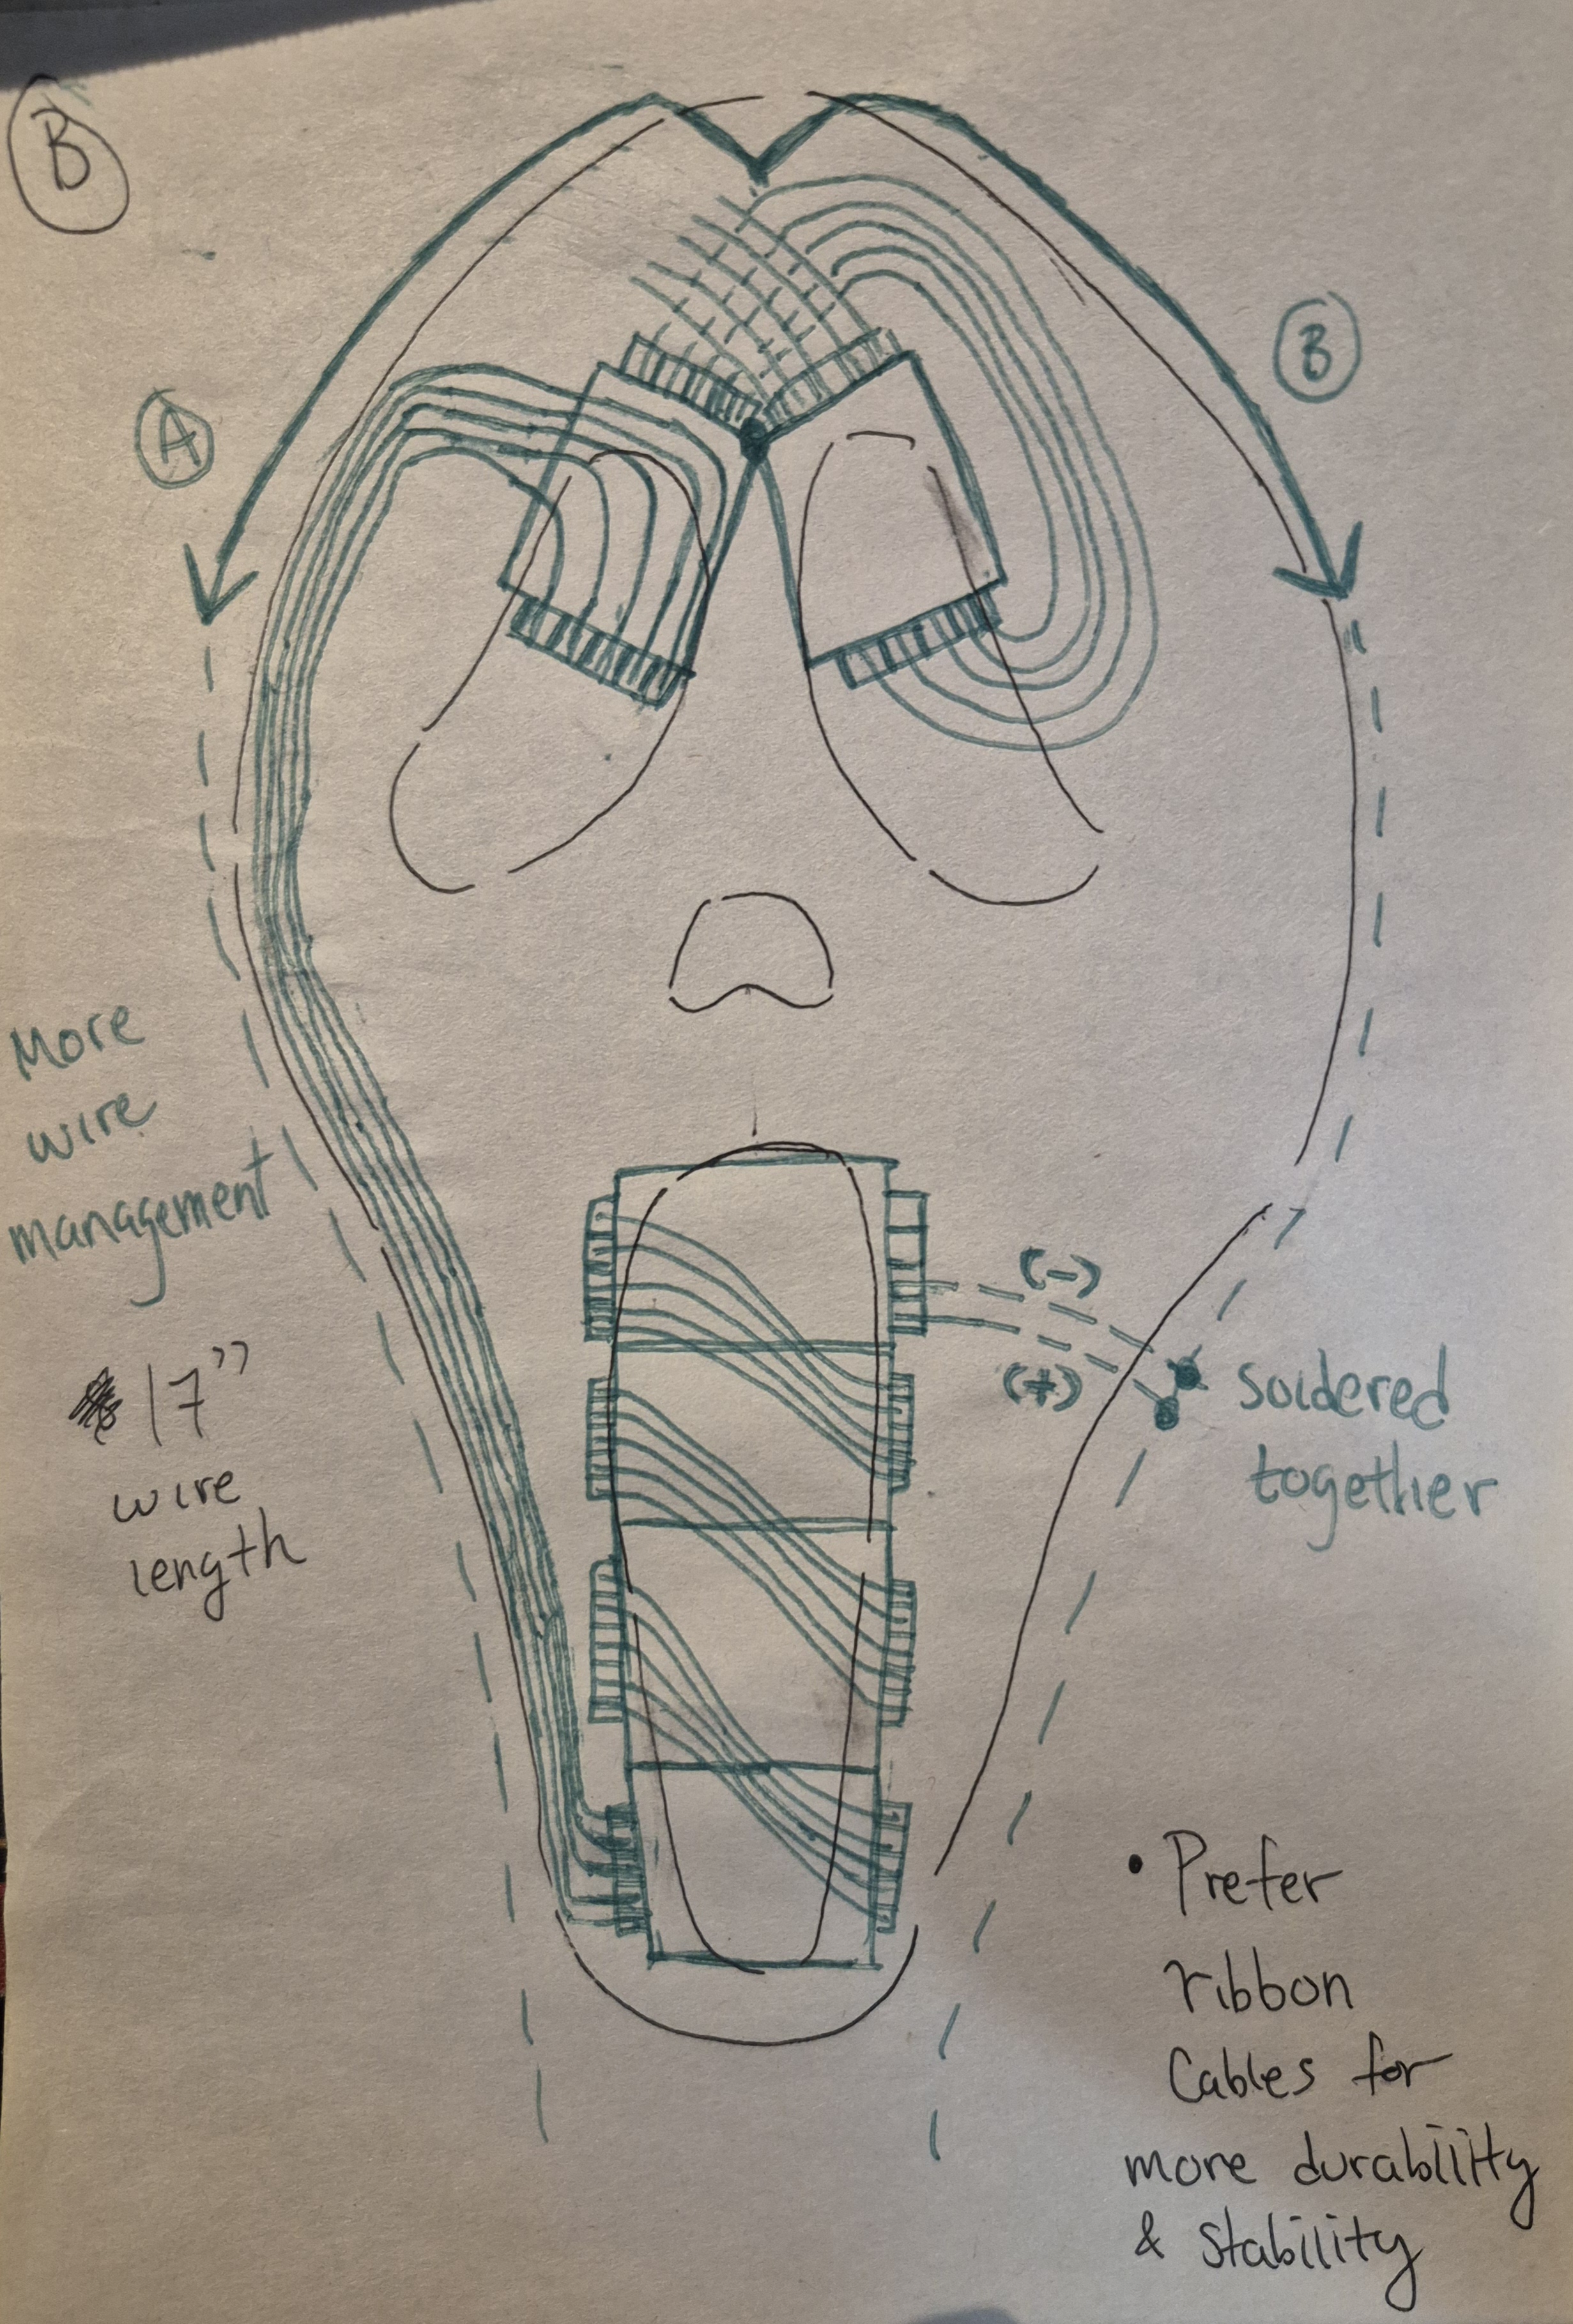 B
B
A
More
wire
management
17"
wire
length
(-)
(+)
soldered
together
• Prefer
ribbon
Cables for
more durabliity
& stability